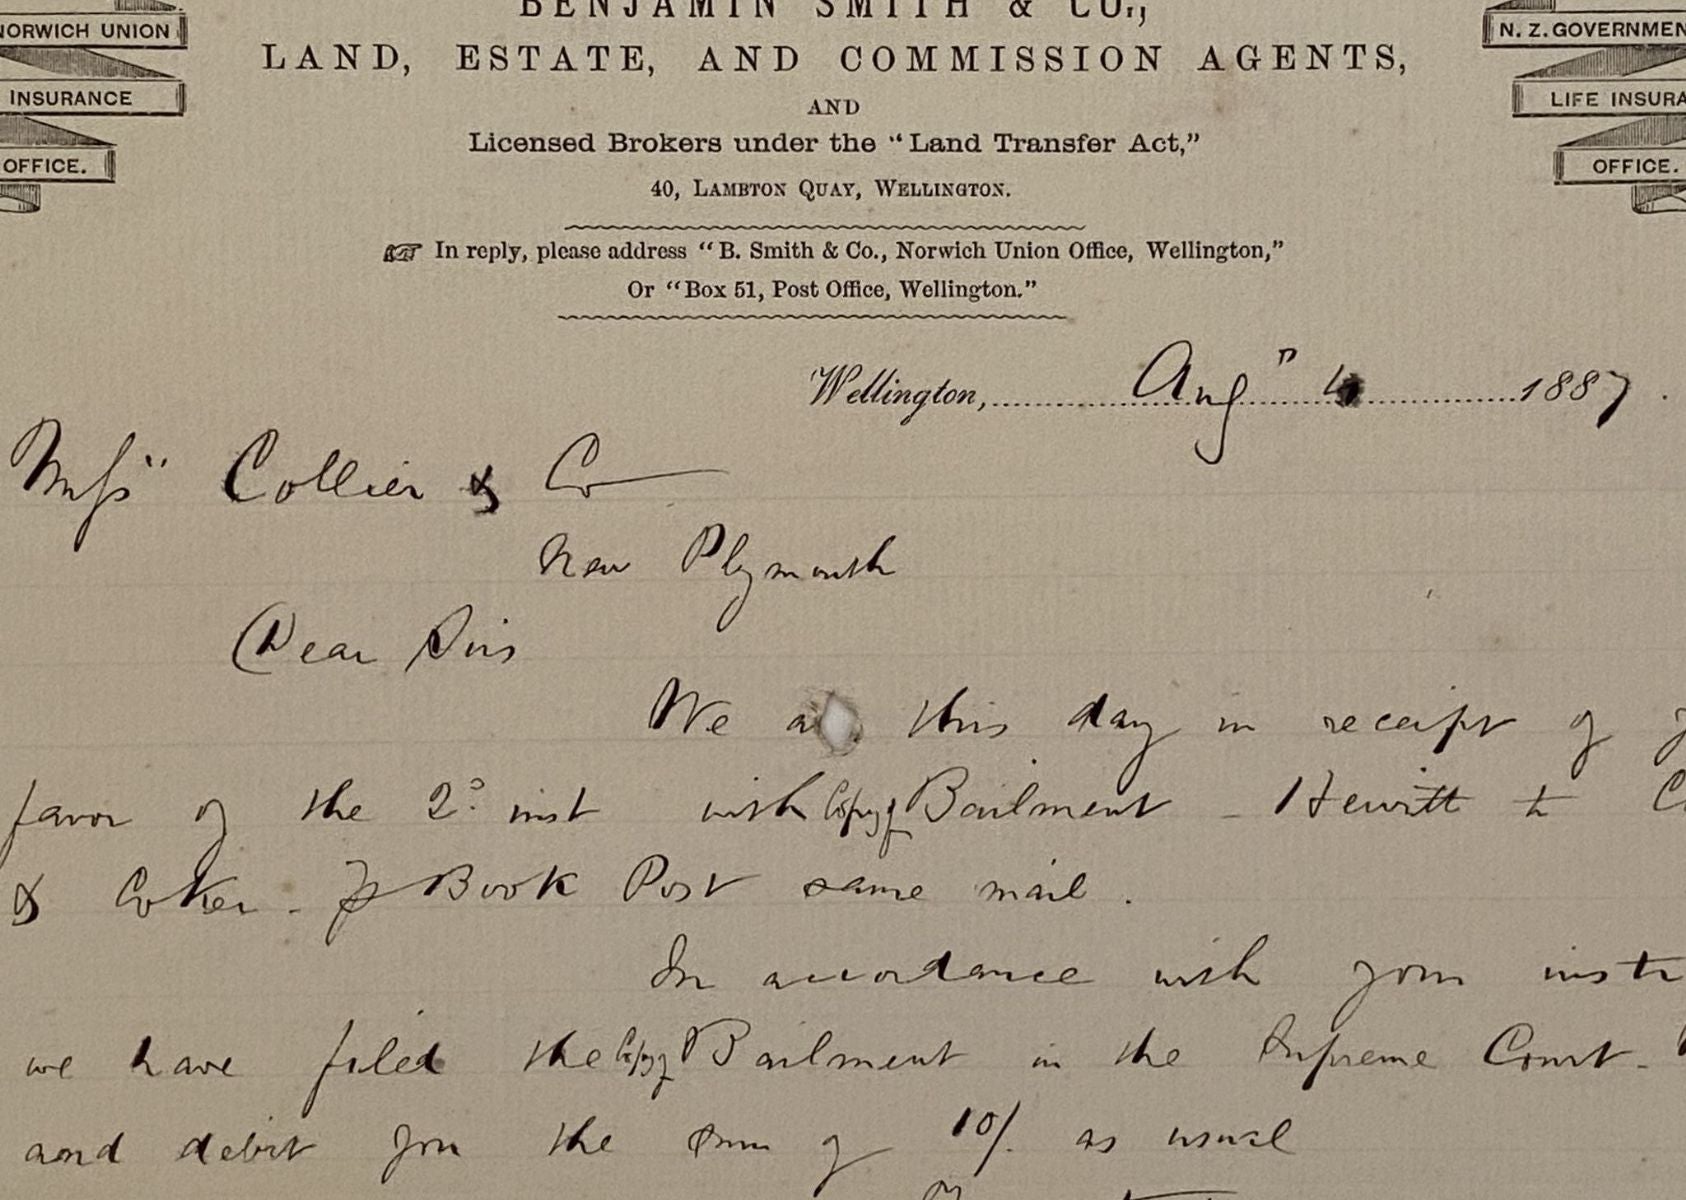 BENJAMIN SMITH & CO.,
LAND, ESTATE, AND COMMISSION AGENTS,
AND
Licensed Brokers under the "Land Transfer Act,"
40, LAMBTON QUAY, WELLINGTON.
NORWICH UNION
INSURANCE
OFFICE.
N. Z. GOVERNMEN
LIFE INSURA
OFFICE.
In reply, please address "B. Smith & Co., Norwich Union Office, Wellington,"
Or "Box 51, Post Office, Wellington."
Wellington, Aug 4 1887
Messrs Collier & Co
New Plymouth
Dear Sirs
We a this day in receipt of
favor of the 2d inst with Copy of Bailment - Hewitt to
& Coker - p Book Post same mail.
In accordance with your inst
we have filed the Copy of Bailment in the Supreme Court -
and debit you the sum of 10/. as usual